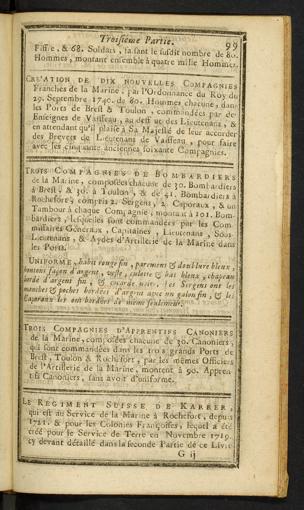 Troisiéme Partie. 99
Fifre, & 68. Soldats, faisant le susdit nombre de 80.
Hommes, montant ensemble à quatre mille Hommes.
CREATION DE DIX NOUVELLES COMPAGNIES
Franches de la Marine, par l'Ordonnance du Roy du
29. Septembre 1740. de 80. Hommes chacune, dans
les Ports de Brest & Toulon, commandées par des
Enseignes de Vaisseau, au deffaut des Lieutenans, &
en attendant qu'il plaise à Sa Majesté de leur accorder
des Brevets de Lieutenans de Vaisseau, pour faire
avec les cinquante anciennes soixante Compagnies.
TROIS COMPAGNIES DE BOMBARDIERS
de la Marine, composées chacune de 30. Bombardiers
à Brest, & 30. à Toulon, & de 41. Bombardiers à
Rochefort, compris 2. Sergens, 2. Caporaux, & un
Tambour à chaque Compagnie, montant à 101. Bom-
bardiers, lesquelles sont commandées par les Com-
missaires Généraux, Capitaines, Lieutenans, Sous-
Lieutenans, & Aydes d'Artillerie de la Marine dans
les Ports.
UNIFORME, habit rouge fin, parement & doublure bleus,
boutons façon d'argent, veste, culotte & bas bleus, chapeau
bordé d'argent fin, & cocarde noire. Les Sergens ont les
manches & poches bordées d'argent avec un galon fin, & les
Caporaux les ont bordées de même seulement.
TROIS COMPAGNIES D'APPRENTIFS CANONIERS
de la Marine, composées chacune de 30. Canoniers,
qui sont commandées dans les trois grands Ports de
Brest, Toulon & Rochefort, par les mêmes Officiers
de l'Artillerie de la Marine, montent à 90. Appren-
tifs Canoniers, sans avoir d'uniforme.
LE REGIMENT SUISSE DE KARRER,
qui est au Service de la Marine à Rochefort, depuis
1721. & pour les Colonies Françoises, lequel a été
créé pour le Service de Terre en Novembre 1719.
cy devant détaillé dans la seconde Partie de ce Livre
G ij